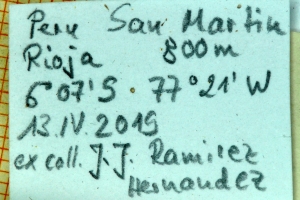 Peru San Martin
Rioja 800m
6°07'S 77°21'W
13.IV.2019
ex coll. J.J. Ramirez
Hernandez